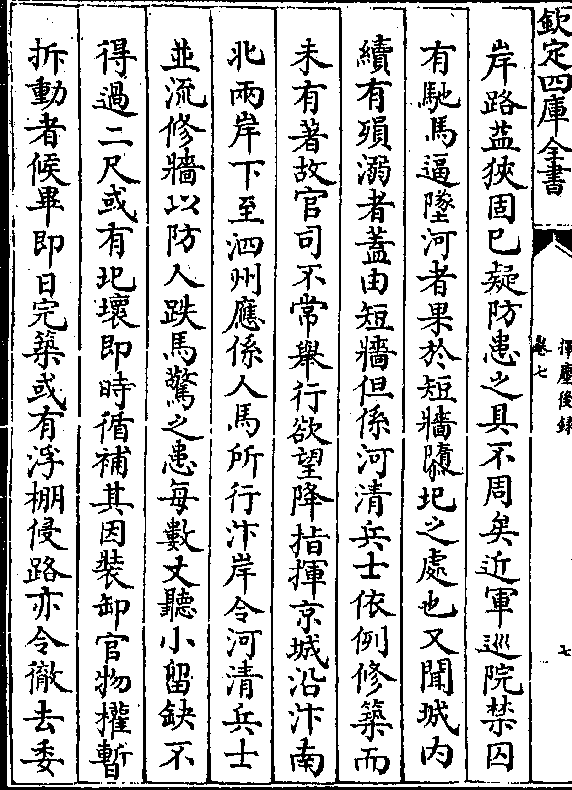 欽定四庫全書
揮麈後錄
卷七
七
岸路益狹固已疑防患之具不周矣近軍巡院禁囚
有馳馬逼墜河者果於短牆隳圮之處也又聞城内
續有殞溺者蓋由短牆但係河清兵士依例修築而
未有著故官司不常舉行欲望降指揮京城沿汴南
北兩岸下至泗州應係人馬所行汴岸令河清兵士
並流修牆以防人跌馬驚之患每數丈聽小留缺不
得過二尺或有圮壞即時循補其因裝卸官物權暫
拆動者候畢即日完築或有浮棚侵路亦令徹去委